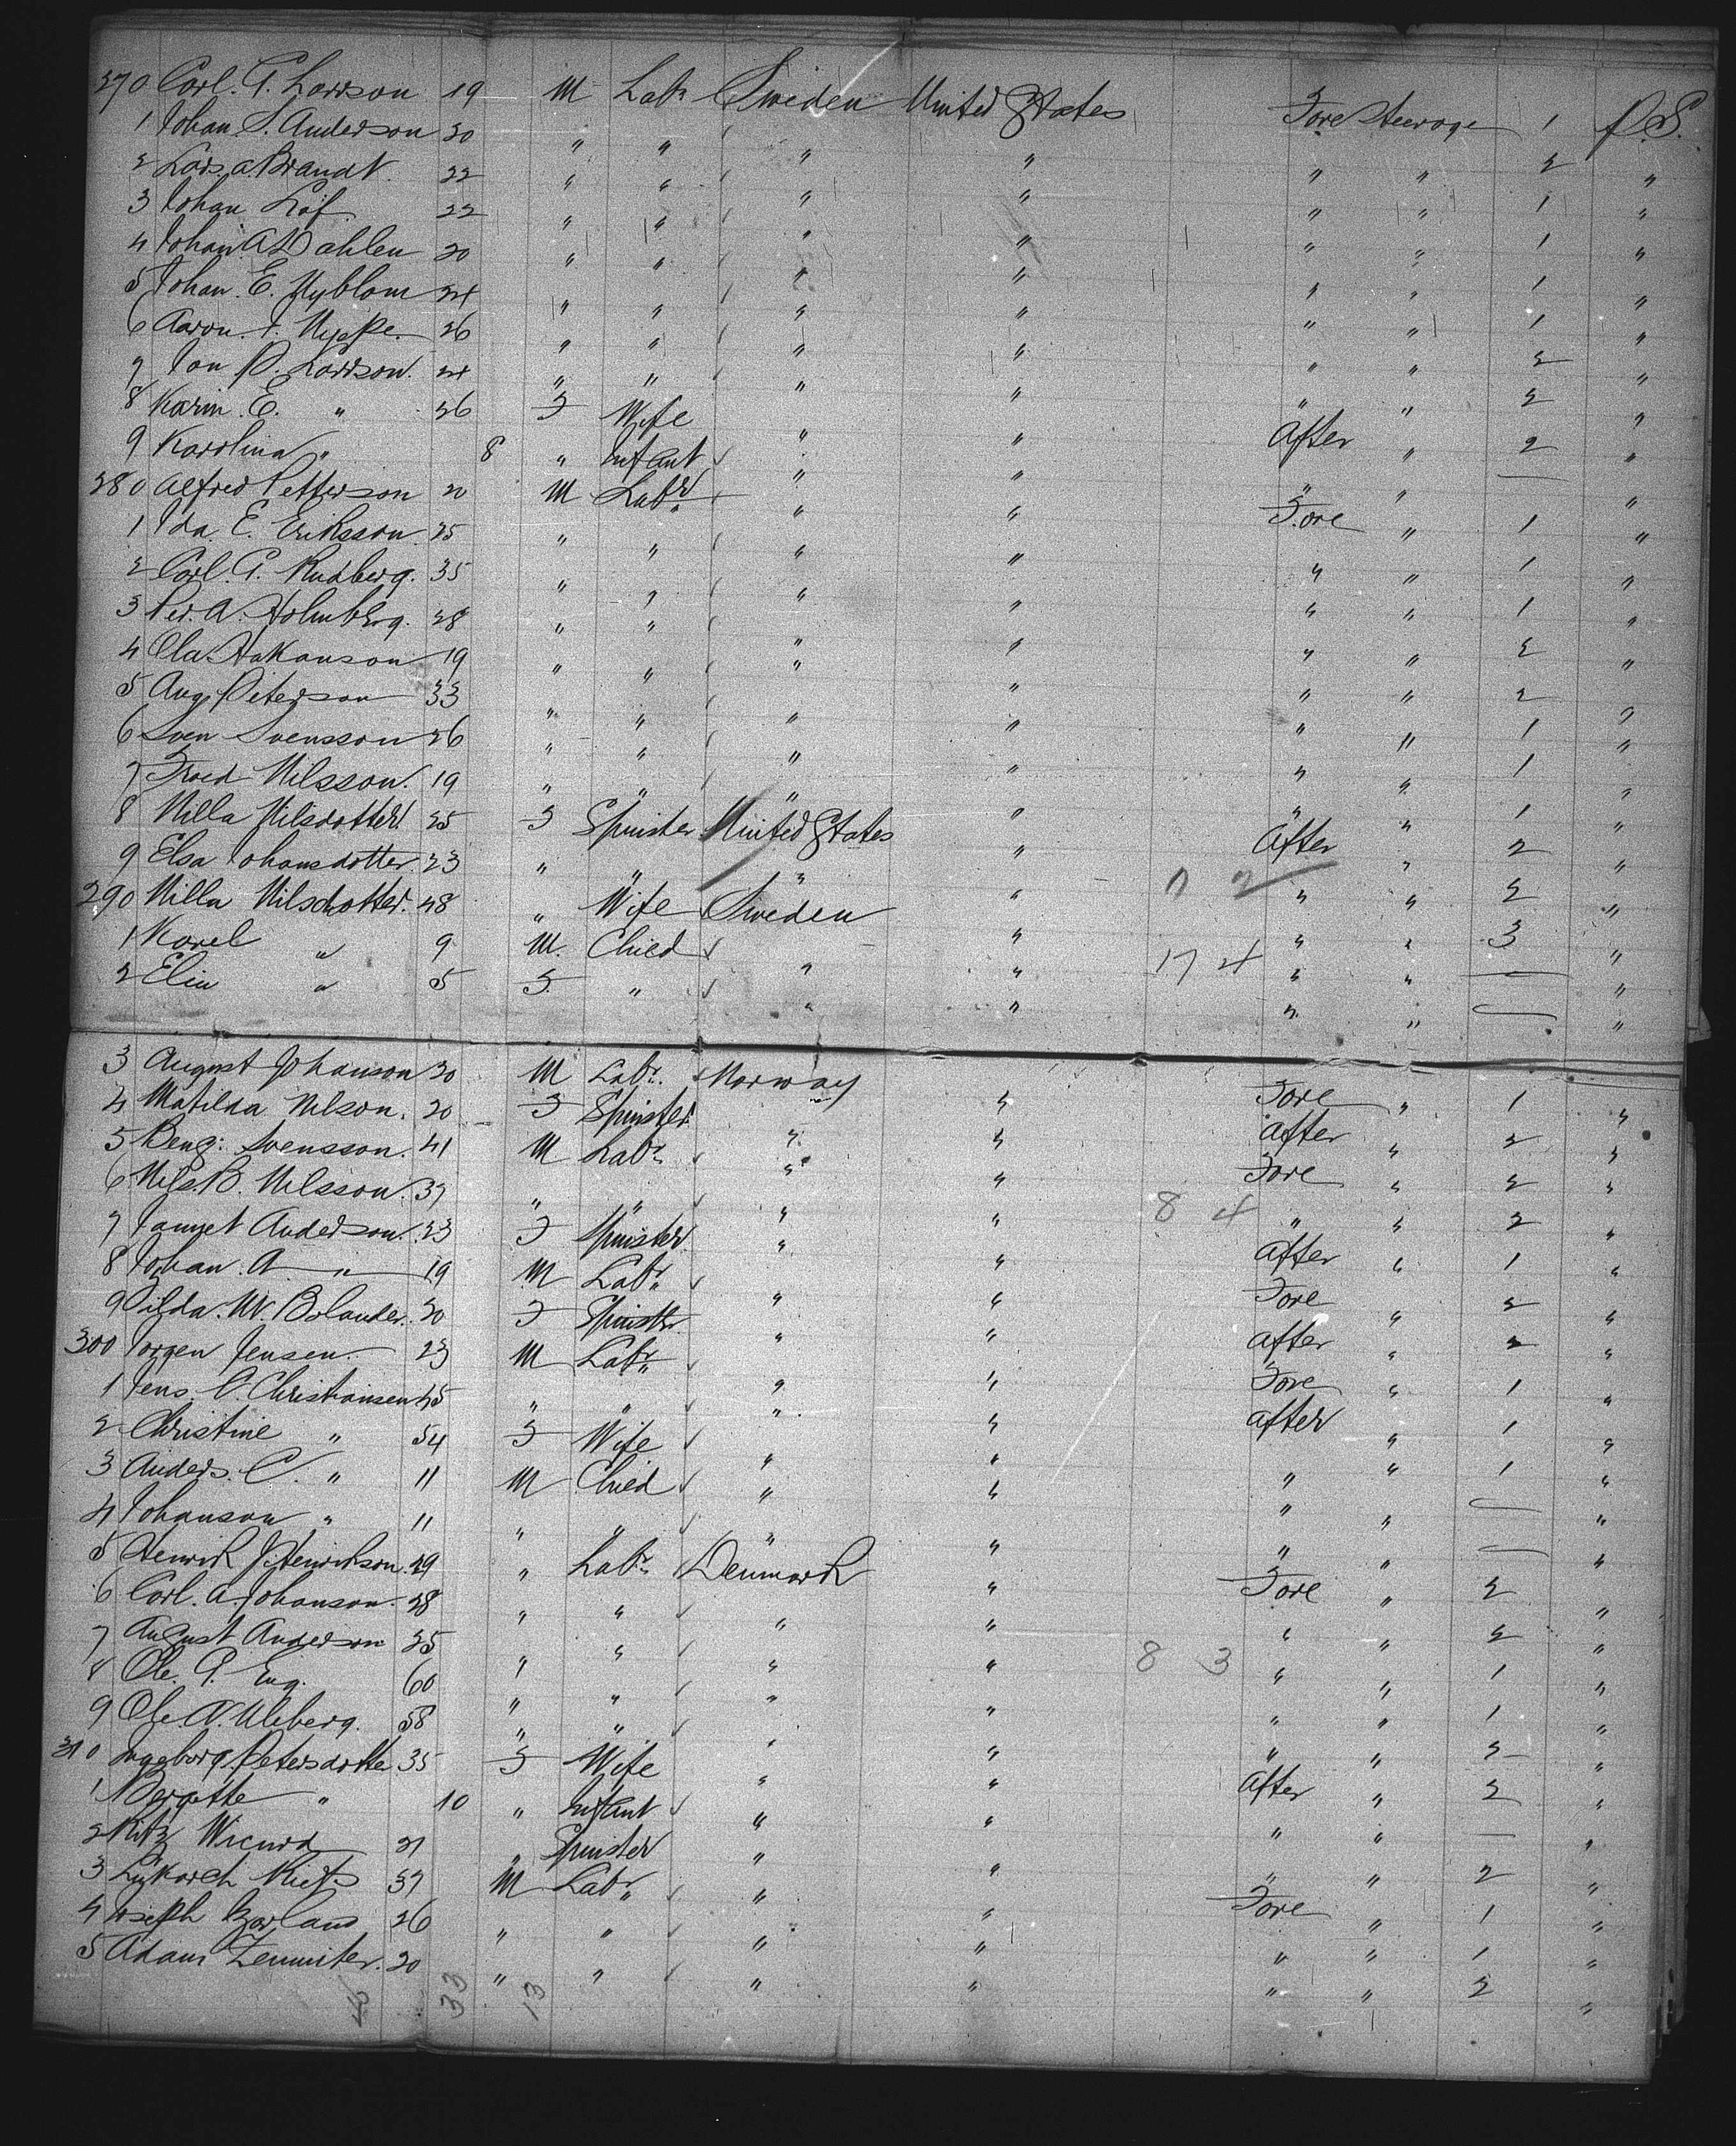 270 Carl. G. Larsson 19 M Labr Sweden United States Fore Steerage 1 P.S.
1 Johan. S. Anderson 30 " " " " " " 2 "
2 Lars. A. Brandt. 22 " " " " " " 1 "
3 Johan Löf 22 " " " " " " 1 "
4 Johan A. Dahlen 20 " " " " " " 1 "
5 Johan. E. Nyblom 24 " " " " " " 1 "
6 Aaron. J. 26 " " " " " " 2 "
7 Jan P. Larsson. 24 " " " " " " 2 "
8 Karin. E. " 26 F Wife " " After " 2 "
9 Karolina " 8 " Infant " " " " — "
280 Alfred Petterson 20 M Labr " " Fore " 1 "
1 Ida. E. Eriksson 25 " " " " " " 1 "
2 Carl. G. Rudberg. 35 " " " " " " 1 "
3 Per. A. Holmberg. 28 " " " " " " 2 "
4 Ola Hakanson 19 " " " " " " 2 "
5 Aug. Peterson 33 " " " " " " 1 "
6 Sven Svensson 26 " " " " " " 1 "
7 Troed Nilsson. 19 " " " " " " 1 "
8 Nilla Nilsdotter 25 F Spinster United States " After " 2 "
9 Elsa Johansdotter 23 " " " " " " 2 "
290 Nilla Nilsdotter. 48 " Wife Sweden " " " 3 "
1 Karel " 9 M. Child " " " " — "
2 Elin " 5 F. " " " " " — "
3 August Johanson 30 M Labr. Norway " Fore " 1 "
4 Matilda Nilson. 20 F Spinster " " After " 2 "
5 Beng: Svensson. 41 M Labr " " Fore " 2 "
6 Nils. B. Nilsson. 37 " " " " 8 4 " " 2 "
7 Anderson. 23 F Spinster " " After " 1 "
8 Johan. A " 19 M Labr " " Fore " 2 "
9 Bolander. 20 F Spinster " " After " 2 "
300 Jorgen Jensen. 23 M Labr " " Fore " 1 "
1 Jens. C. Christiansen 45 " " " " After " 1 "
2 Christine " 54 F Wife " " " " 1 "
3 Anders. C. " 11 M Child " " " " — "
4 Johanson " 11 " " " " " " — "
5 Henrik J. Henrikson. 29 " Labr Denmark " Fore " 2 "
6 Carl. A. Johanson. 28 " " " " " " 2 "
7 August Anderson 25 " " " " 8 3 " " 1 "
8 Ole. P. Eng. 60 " " " " " " 1 "
9 Ole. N. 58 " " " " " " 2 "
310 Ingeborg Petersdotte 35 F Wife " " After " 2 "
1 Bergette " 10 " Infant " " " " — "
2 21 " Spinster " " " " 2 "
3 37 M Labr " " Fore " 1 "
4 Joseph 26 " " " " " " 1 "
5 Adam 20 " " " " " " 2 "
33 13